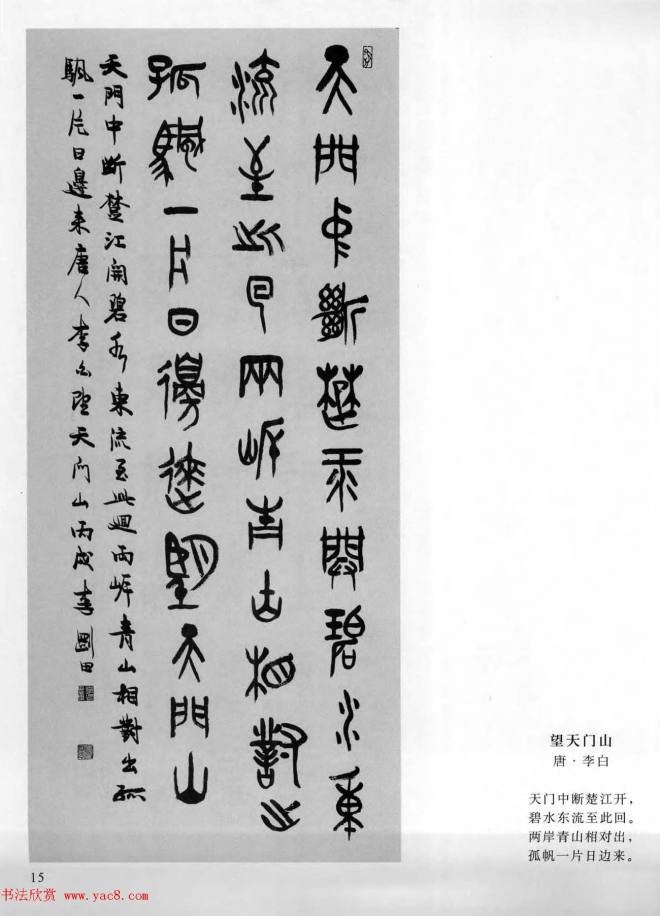 天門中斷楚江開碧水東
流至此回兩岸青山相對出
孤颿一片日邊來望天門山
天門中斷楚江開碧水東流至此迴兩岸青山相對出孤
颿一片日邊来唐人李白望天门山丙戌春
望天门山
唐·李白
天门中断楚江开，
碧水东流至此回。
两岸青山相对出，
孤帆一片日边来。
15
书法欣赏 www.yac8.com